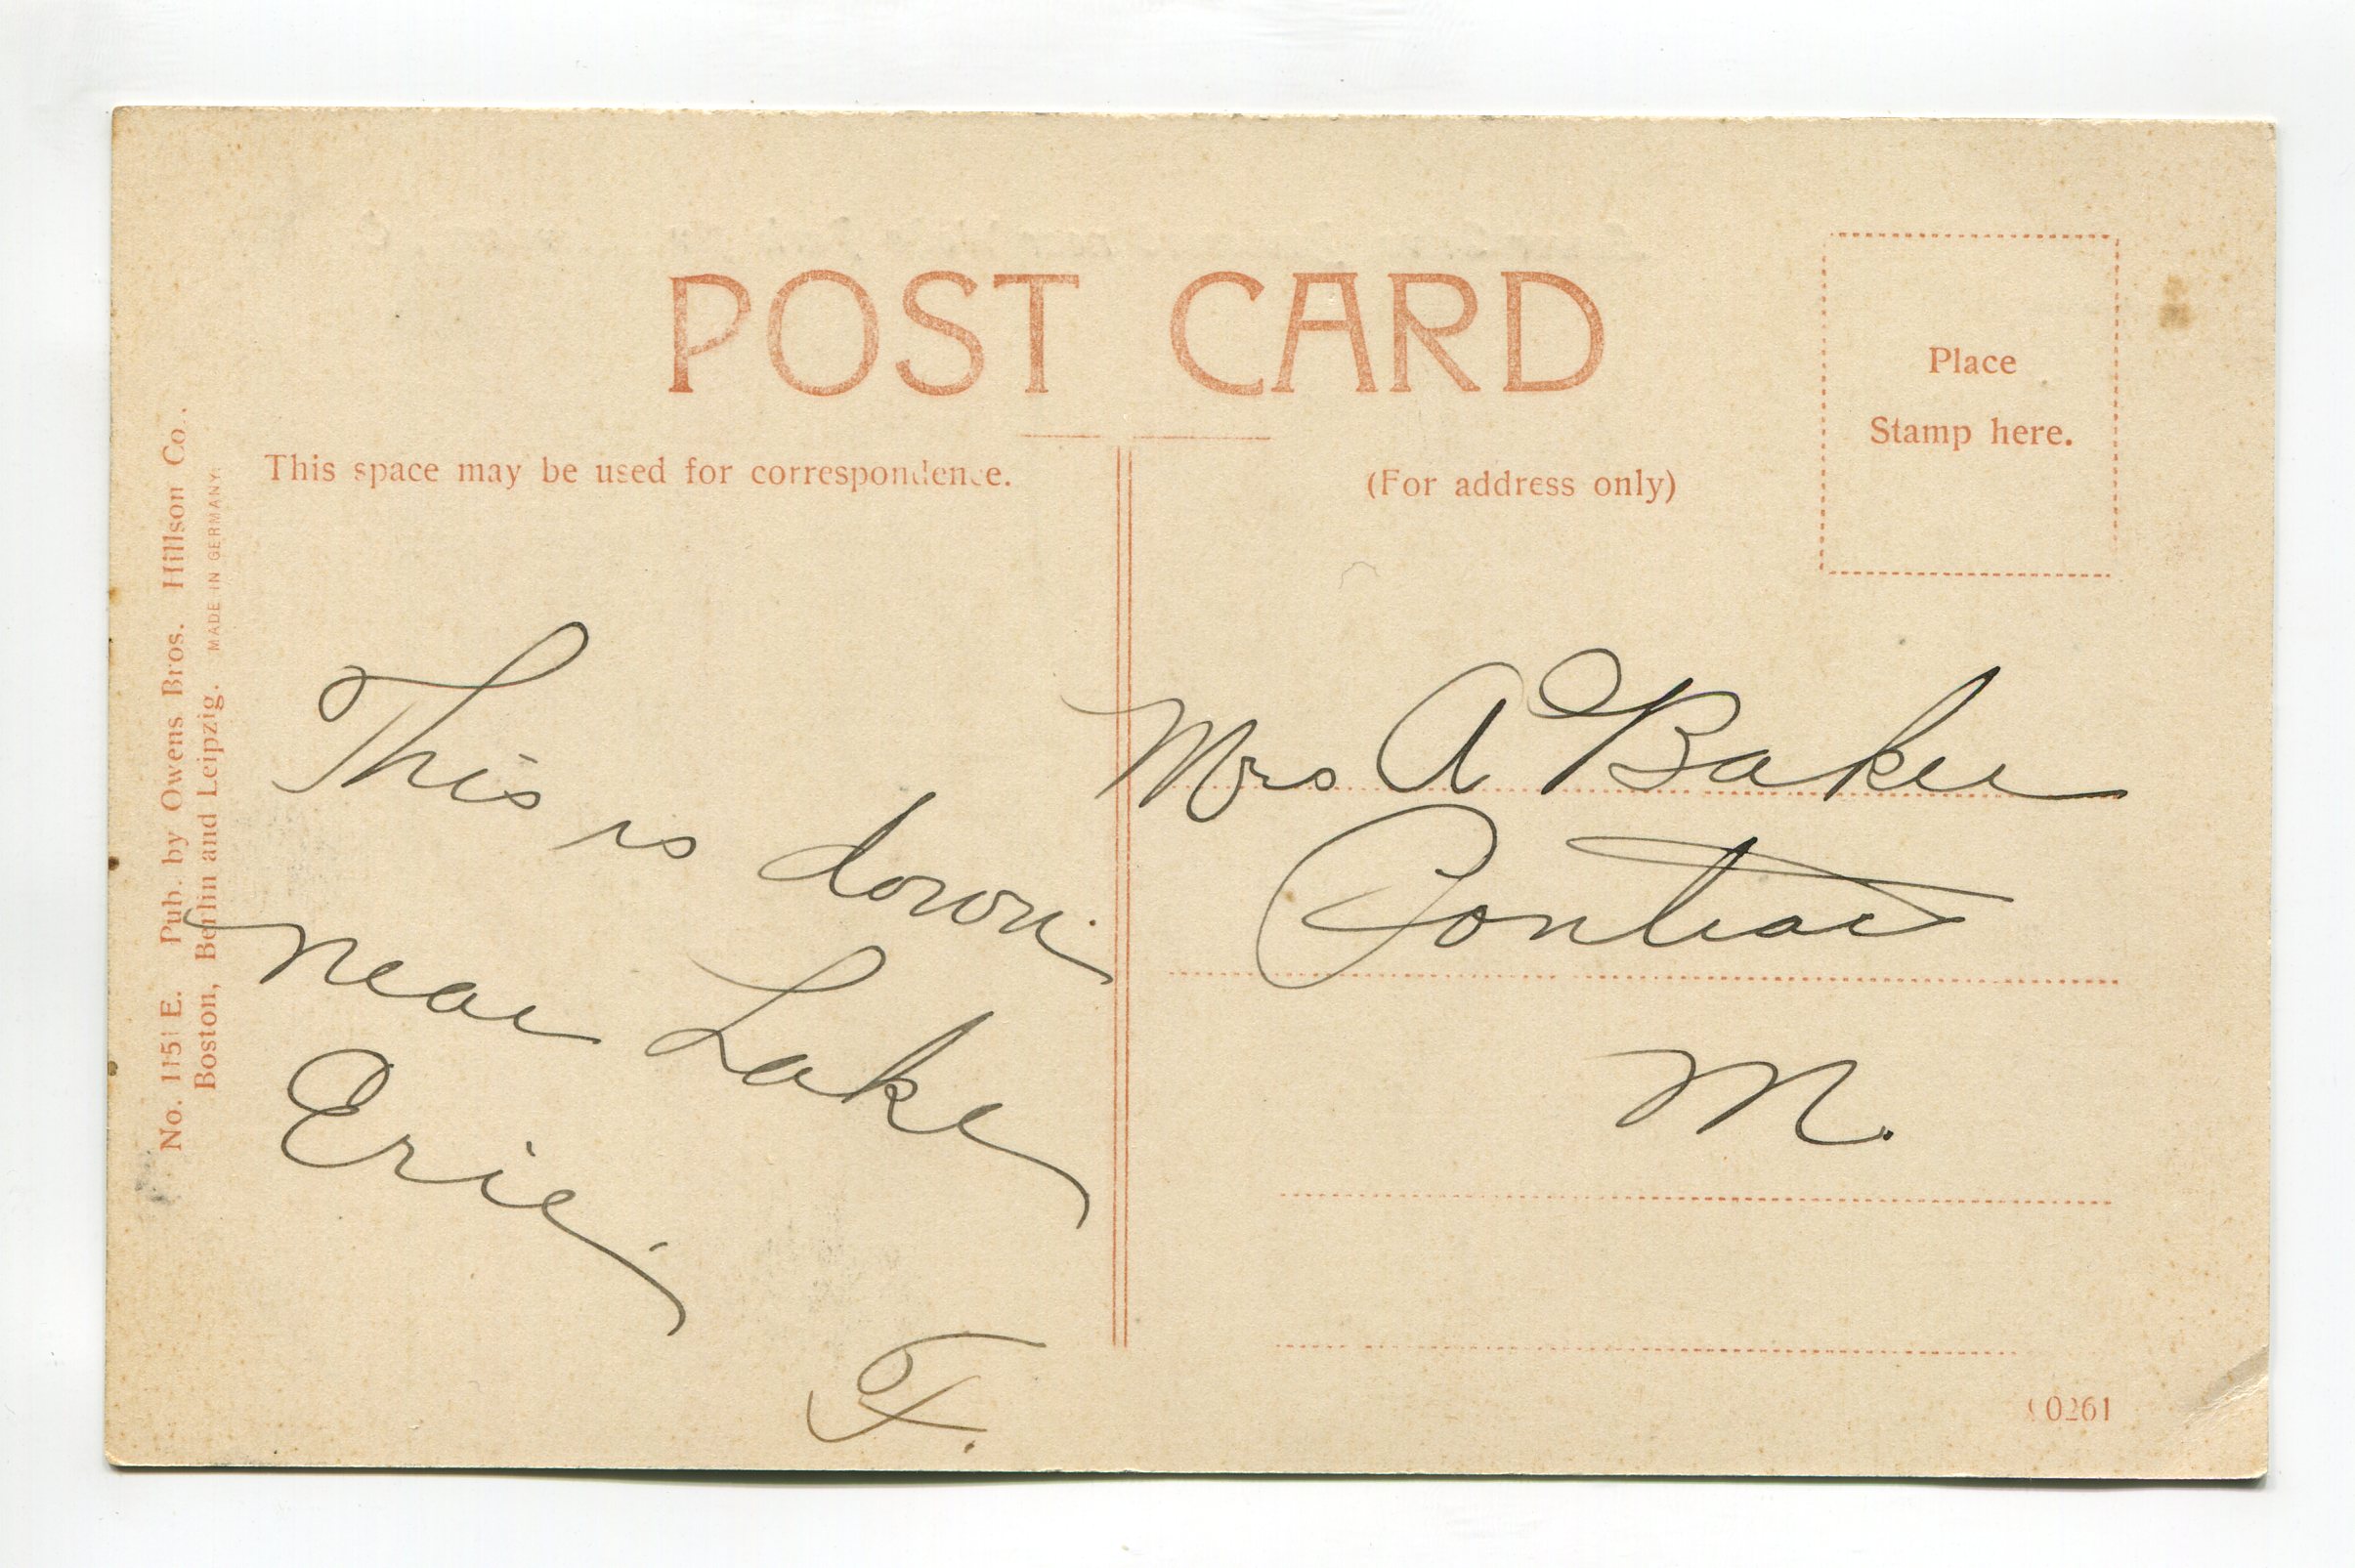 POST CARD
Place
Stamp here.
This space may be used for correspondence.
(For address only)
No. 1151 E. Pub. by Owens Bros. Hillson Co.,
Boston, Berlin and Leipzig. MADE IN GERMANY.
This is down
near Lake
Erie.
F.
Mrs A Baker
Pontiac
M.
0261